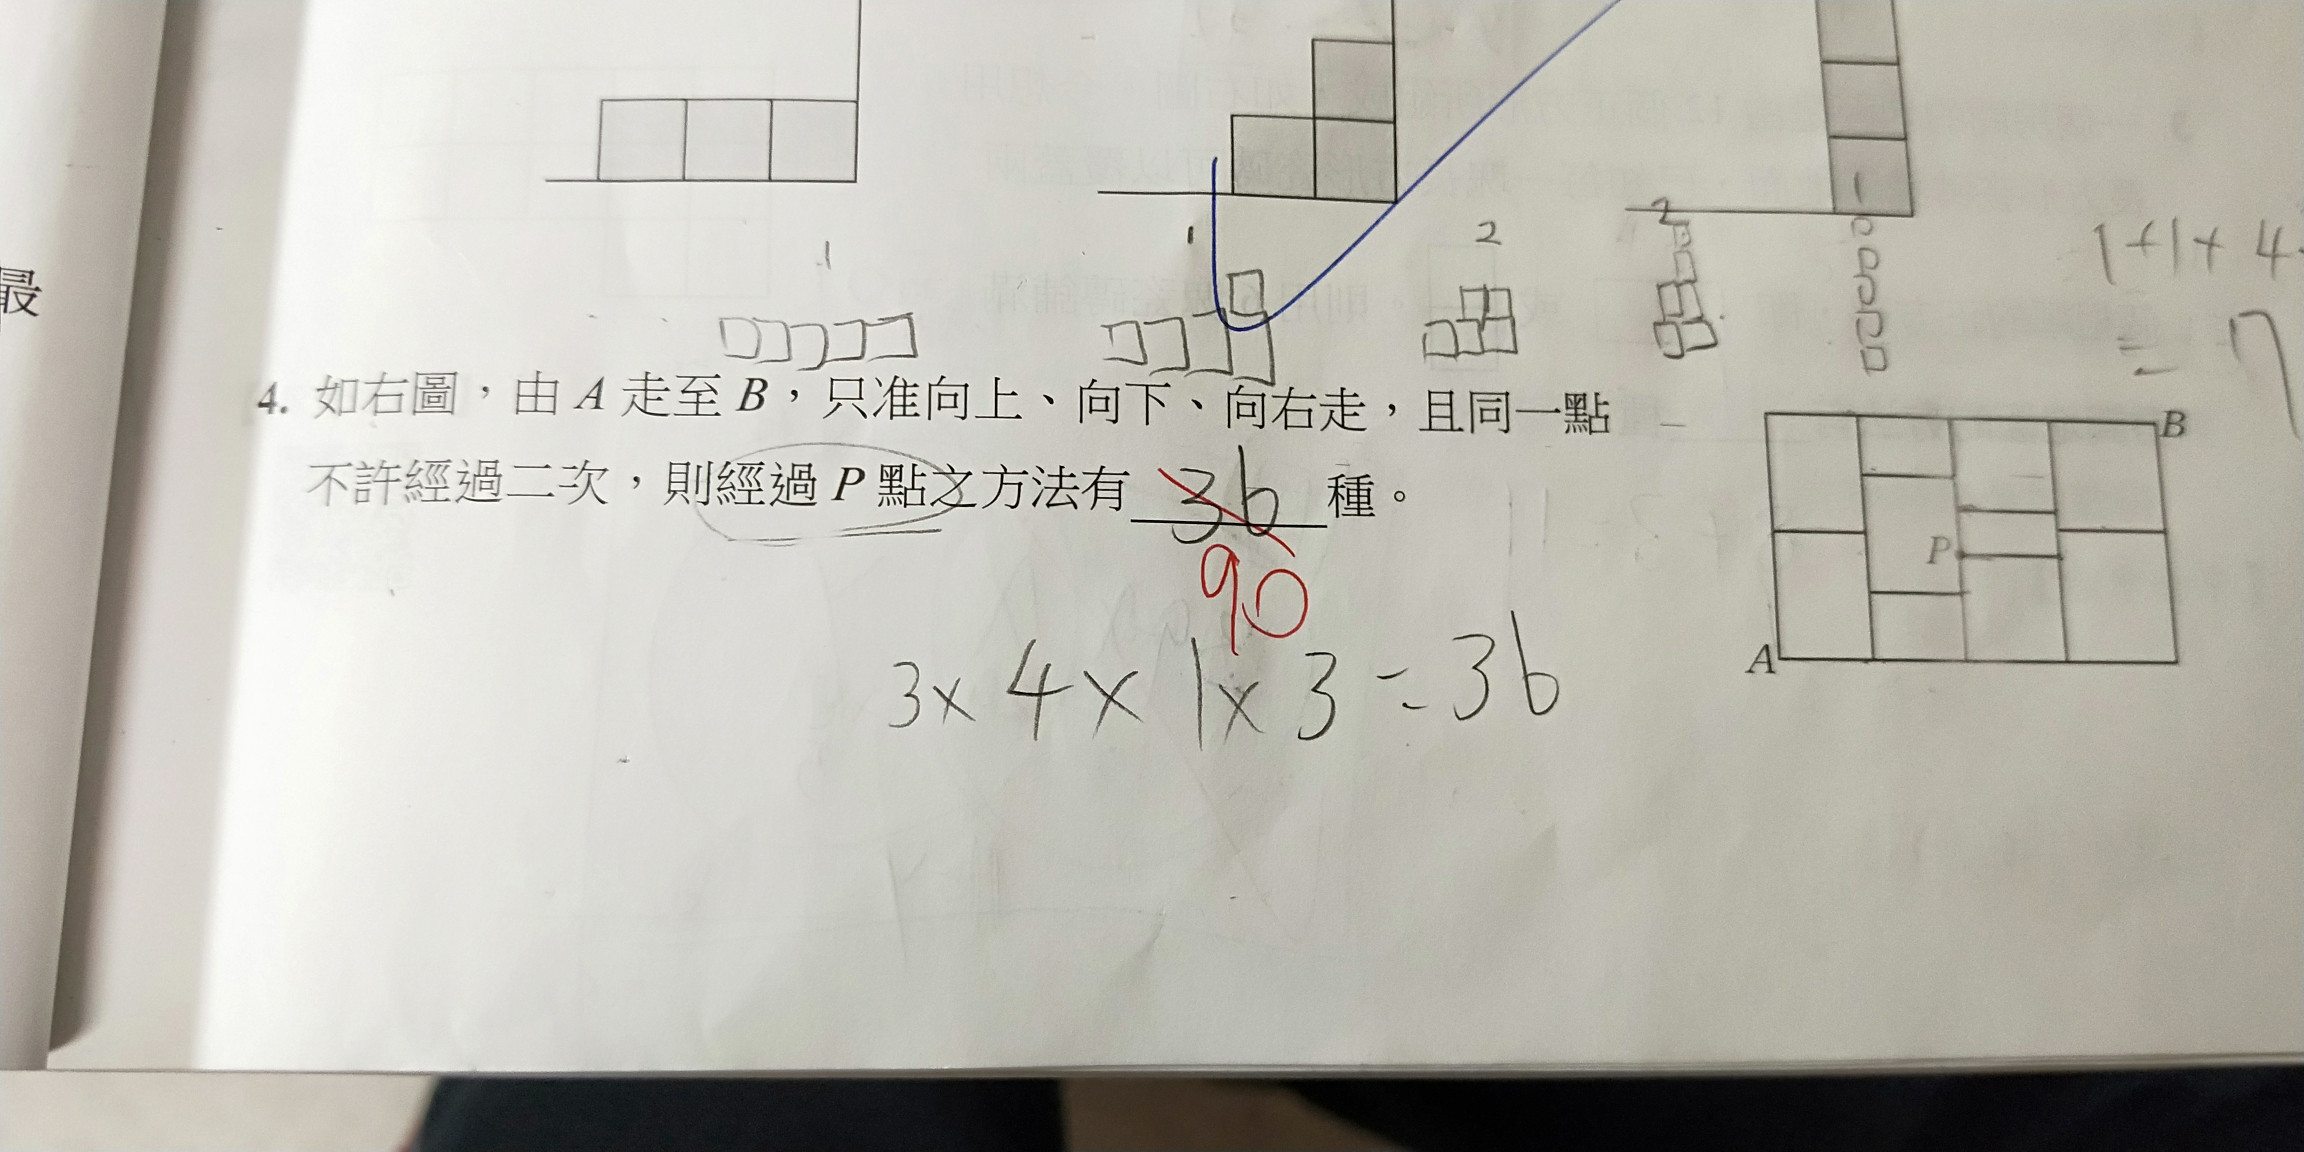 1
1
2
2
1
1+1+4
= 7
最
4. 如右圖，由 A 走至 B，只准向上、向下、向右走，且同一點
不許經過二次，則經過 P 點之方法有 36 種。
90
3×4×1×3=36
B
P
A